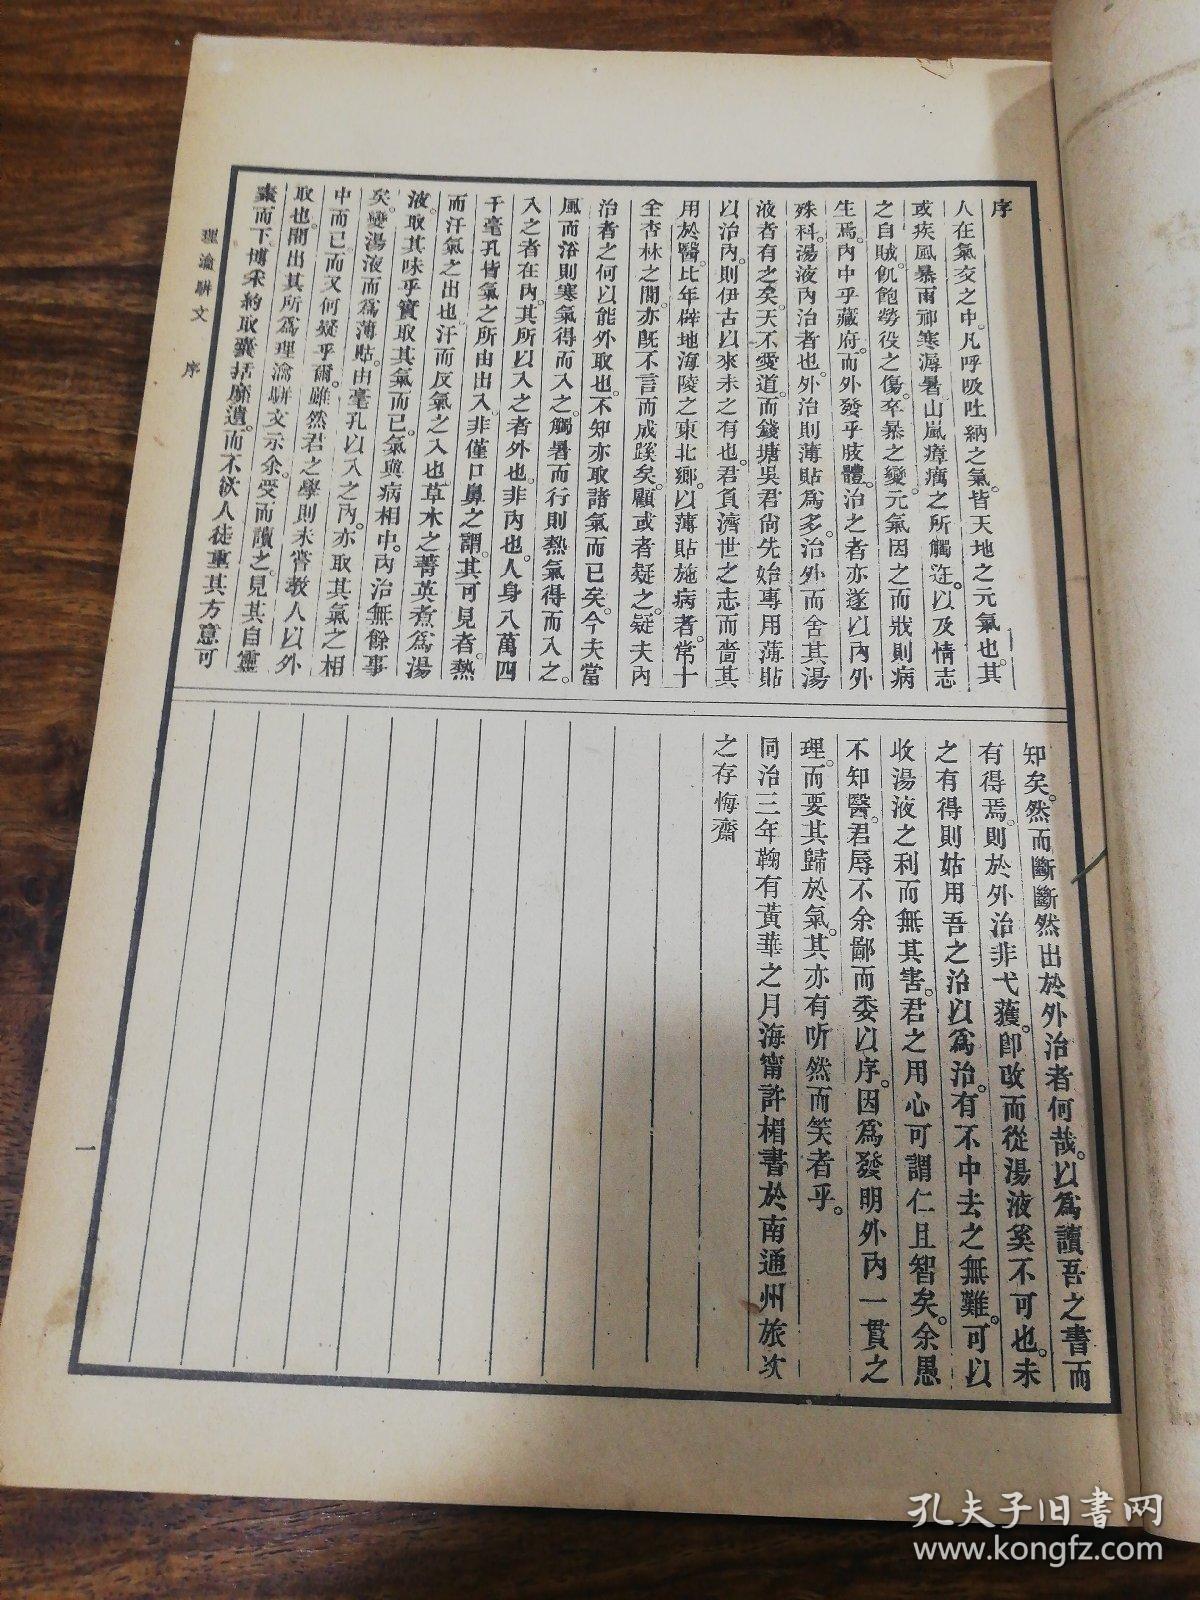 序
人在氣交之中。凡呼吸吐納之氣。皆天地之元氣也。其
或疾風暴雨祁寒溽暑山嵐瘴癘之所觸迕。以及情志
之自賊。飢飽勞役之傷。卒暴之變。元氣因之而戕則病
生焉。內中乎藏府。而外發乎肢體。治之者亦遂以內外
殊科。湯液內治者也。外治則薄貼為多。治外而舍其湯
液者有之矣。天不愛道。而錢塘吳君尙先始專用薄貼
以治內。則伊古以來未之有也。君負濟世之志而嗇其
用於醫。比年僻地海陵之東北鄉。以薄貼施病者。常十
全杏林之閒。亦旣不言而成蹊矣。顧或者疑之。疑夫內
治者之何以能外取也。不知亦取諸氣而已矣。今夫當
風而浴則寒氣得而入之。觸暑而行則熱氣得而入之。
入之者在內。其所以入之者外也。非內也。人身八萬四
千毫孔皆氣之所由出入。非僅口鼻之謂。其可見者。熱
而汗氣之出也。汗而反氣之入也。草木之菁英煮為湯
液。取其味乎實取其氣而已。氣與病相中。內治無餘事
矣。變湯液而為薄貼。由毫孔以入之內。亦取其氣之相
中而已。而又何疑乎爾。雖然君之學則未嘗敎人以外
取也。閒出其所為理瀹駢文示余。受而讀之。見其自靈
素而下。博采約取囊括靡遺。而不欲人徒重其方意可
理瀹駢文 序
一
知矣。然而斷斷然出於外治者何哉。以為讀吾之書而
有得焉。則於外治非弋獲。卽改而從湯液奚不可也。未
之有得則姑用吾之治以為治。有不中去之無難。可以
收湯液之利而無其害。君之用心可謂仁且智矣。余愚
不知醫。君辱不余鄙而委以序。因為發明外內一貫之
理。而要其歸於氣。其亦有听然而笑者乎。
同治三年鞠有黃華之月海甯許楣書於南通州旅次
之存悔齋
孔夫子旧书网
www.kongfz.com